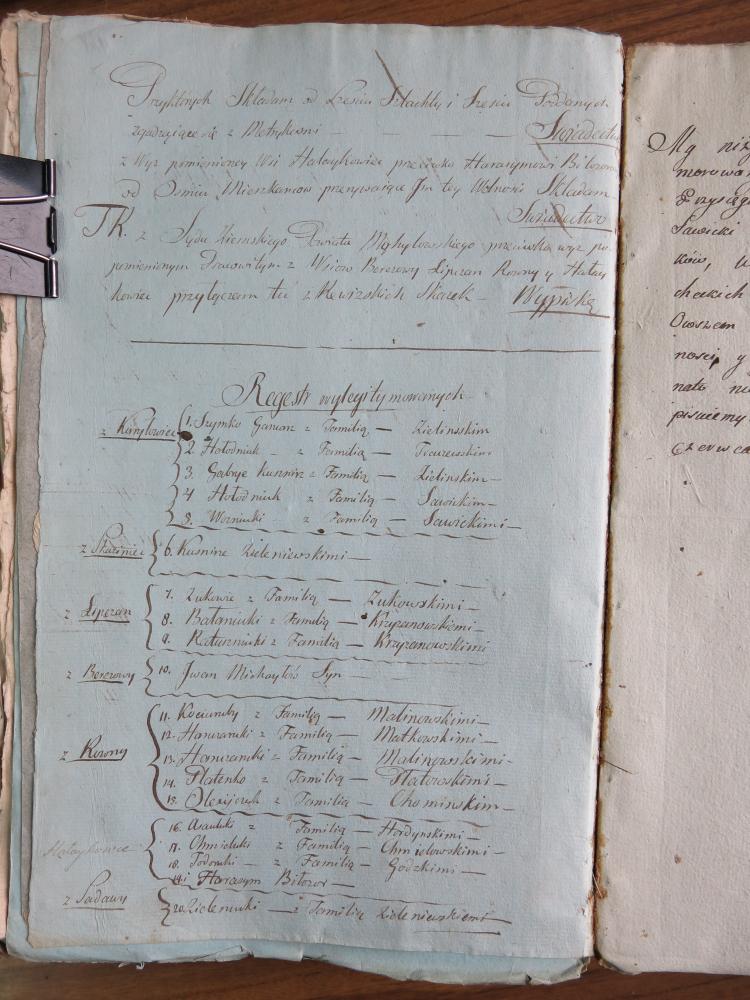 Przyktórych Składam od Sześciu Szlachty i Sześciu Poddanych
zgadzaiące się z Metrykami — — — Swiadectwo
z Wyż pomienioney Wsi Hałaykowiec przeciwko Harasymowi Bilozor
od Osmiu Mieszkancow Składam
Swiadectwo
TK. z Sądu Ziemskiego Powiatu Mohylowskiego przeciwko wyż po
pomienionym z Wsiow Berezowy Lipczan Rowny y Hałay
kowiec przyłączam tu z Rewizskich Skazek — Wypiskę
Regestr wylegitymowanych
z Kuryłowiec
1. Szymko Gancar z Familią — Zielinsskim
2. Hołodniuk — z Familią —
3. Gabryє Kusznir z Familią — Zielinskim
4 Hołodniuk z Familią — Sawickim —
5. Wozniuki — z Familią — Sawickimi —
6. Kusnirze Zieleniewskimi —
z Lipczan
7. Zukowie z Familią — Zukowskimi —
8. Bataniuki z Familią — Krzyzanowskiemi
9. Katerniuki z Familią — Krzyzanowskimi
z Berezowy
10. Jwan Michayłow Syn —
z Rowny
11. z Familią — Malinowskimi —
12. Hanczaruki z Familią — Matkowskimi —
13. Hanczaruki z Familią — Malinowskimi —
14. Płatenko z Familią — Płatowskimi —
15. Olexijczuk z Familią — Chominskim —
Hałaykowce
16. z Familią — Hordynskimi —
17. Chmieluki z Familią — Chmielowskimi —
18. — z Familią — Godzkimi —
19. Harasym Bilozor —
z Sadawy
20. Zieleniuki — z Familią Zieleniewskiemi
My niż
Przysięg
Sawicki
ków, w
checkich
Owszem
nosci, y
nato
piszemy
Czerwca